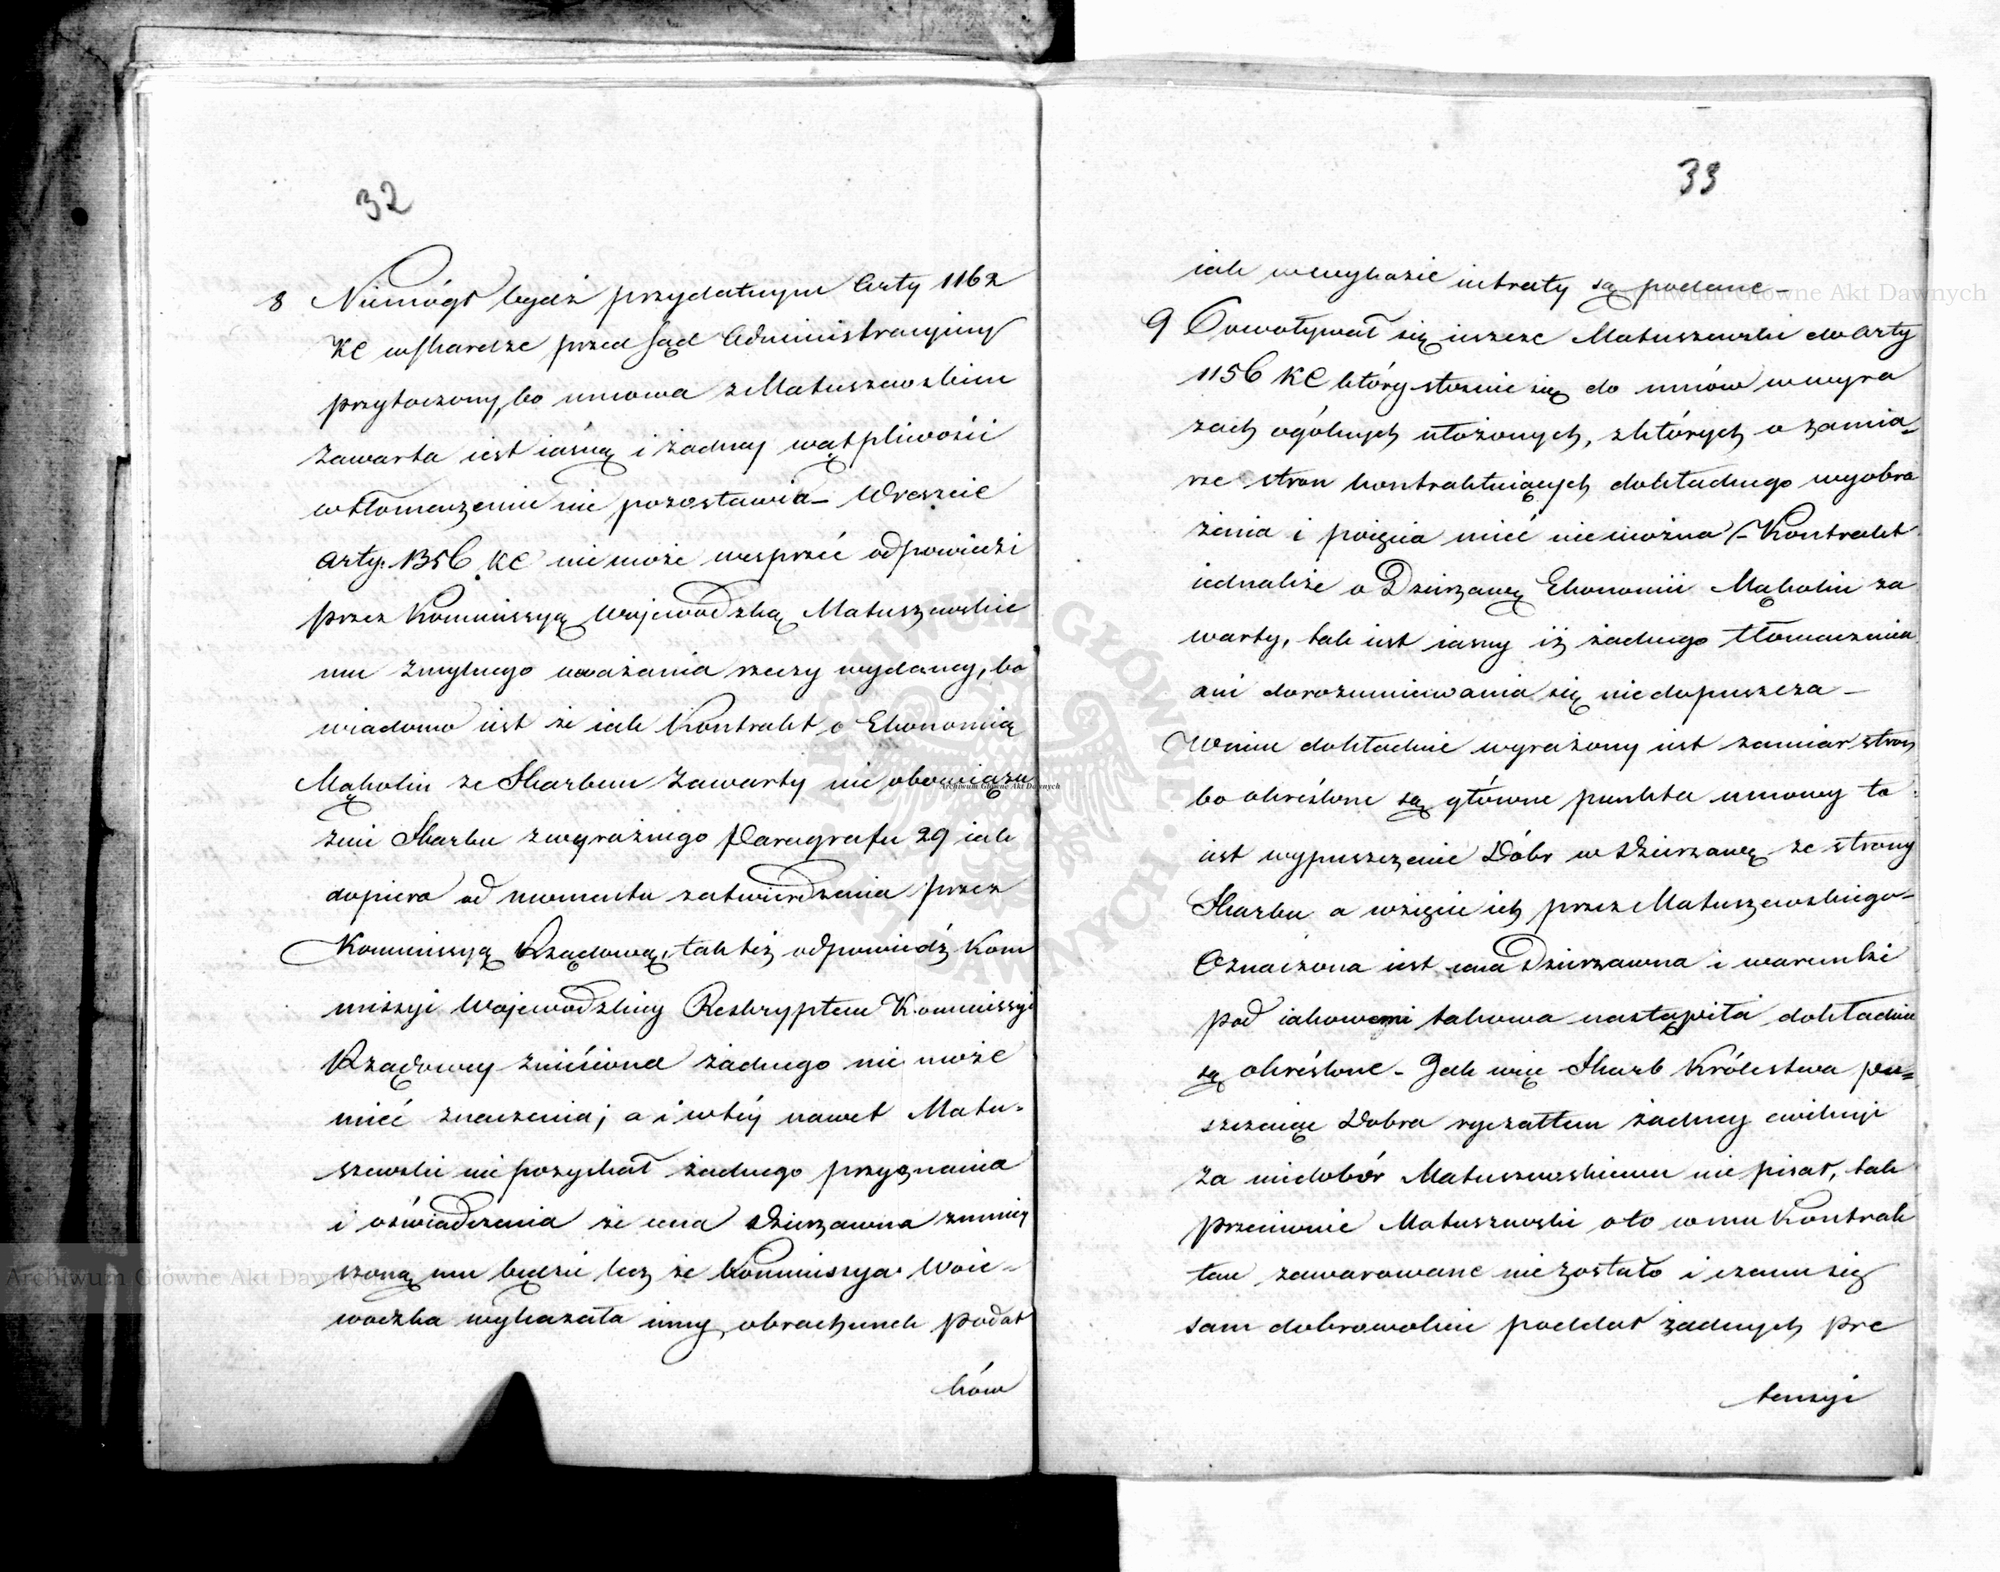 32
8 Niemógł bydź przydatnym Arty 1162
KC w skardze przed Sąd Administracyiny
przytoczony, bo umowa z Matuszewskim
zawarta iest iasną i żadney wątpliwości
w tłomaczeniu nie pozostawia – Wreszcie
Arty. 1356 KC nie może wesprzéc odpowiedzi
przez Kommissyą Wojewodzką Matuszewskie
mu z mylnego uważania rzeczy wydaney, bo
wiadomo iest że iak Kontrakt o Ekonomią
Mąkolin ze Skarbem zawarty nie obowiązu
ie Skarbu z wyraźnego Paragrafu 29 iak
dopiero od momentu zatwierdzenia przez
Kommissyą Rządową, tak też odpowiedź Kom
missyi Wojewodzkiey Reskryptem Kommissyi
Rządowey zniesiona żadnego nie może
mieć znaczenia; a i w téy nawet Matu-
szewski nie pozyskał żadnego przyznania
i oświadczenia że cena dzierzawna zmniey
szoną mu będzie lecz że Kommissya Woie-
wodzka wykazała inny obrachunek podat
ków
33
iak w wykazie intraty są podane –
9 Powoływał się ieszcze Matuszewski do Arty
1156 KC który stosuie się do umów w wyra
zach ogólnych ułożonych, z których o zamia-
rze stron kontraktuiących dokładnego wyobra
żenia i poięcia mieć nie można – Kontrakt
iednakże o Dzierzawę Ekonomii Mąkolin za
warty, tak iest iasny iż żadnego tłomaczenia
ani dorozumiewania się niedopuszcza –
W nim dokładnie wyrażony iest zamiar stron
bo określone są główne punkta umowy to
iest wypuszczenie Dóbr w dzierzawę ze strony
Skarbu a wzięcie ich przez Matuszewskiego –
Oznaczona iest cena Dzierzawna i warunki
pod iakowemi takowa nastąpiła dokładnie
są określone – Jak więc Skarb Królestwa pu=
szczaiąc Dobra ryczałtem żadney ewikcyi
za niedobór Matuszewskiemu nie pisał, tak
przeciwnie Matuszewski o to w mu Kontrak
tem zawarowane nie zostało i czemu się
sam dobrowolnie poddał żadnych pre
tensyi
Archiwum Główne Akt Dawnych
Archiwum Główne Akt Dawnych
Archiwum Główne Akt Dawnych
ARCHIWUM GŁÓWNE AKT DAWNYCH